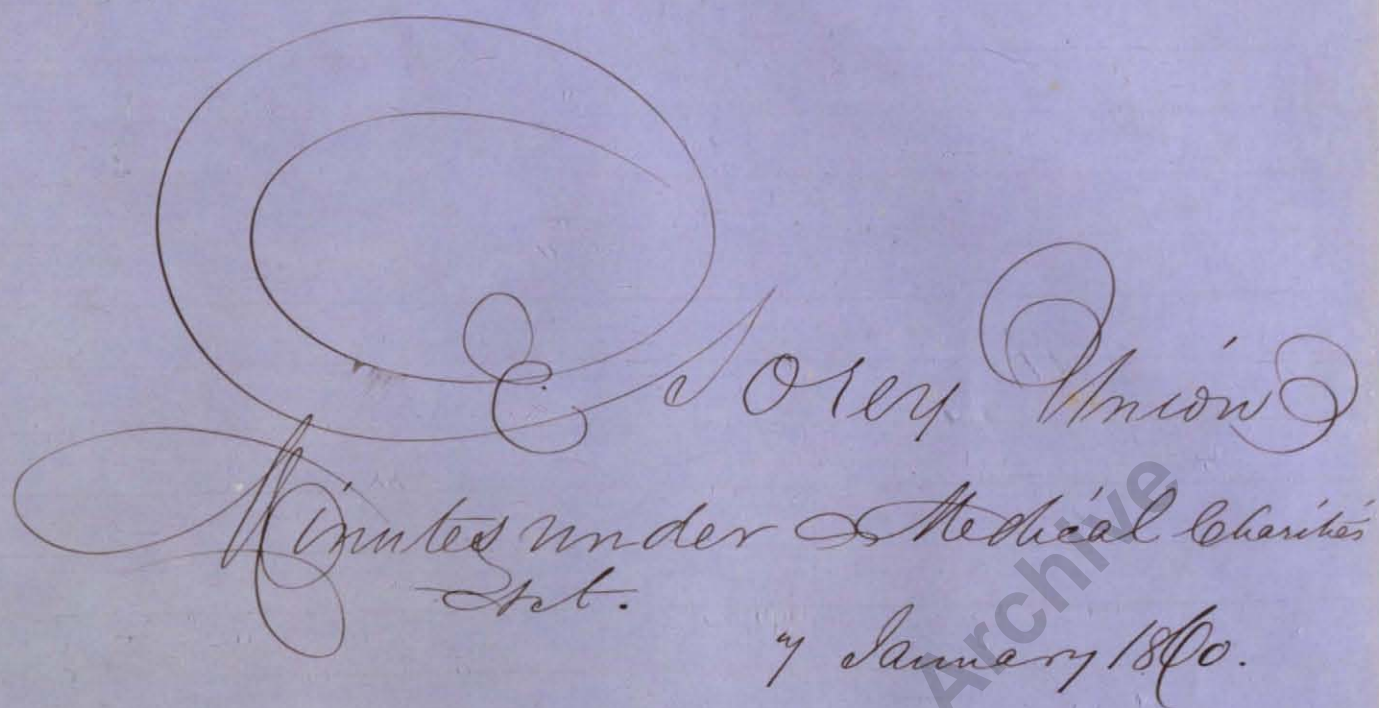 Gorey Union
Minutes under Medical Charities
Act.
7 January 1860.
Archive